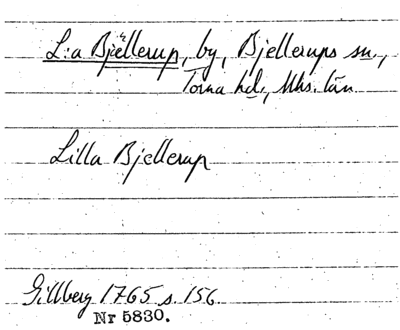 L:a Bjällerup, by, Bjellerups sn.,
Torna hd., Mhs. län
Lilla Bjellerup
Gillberg 1765 s. 156
Nr 5830.